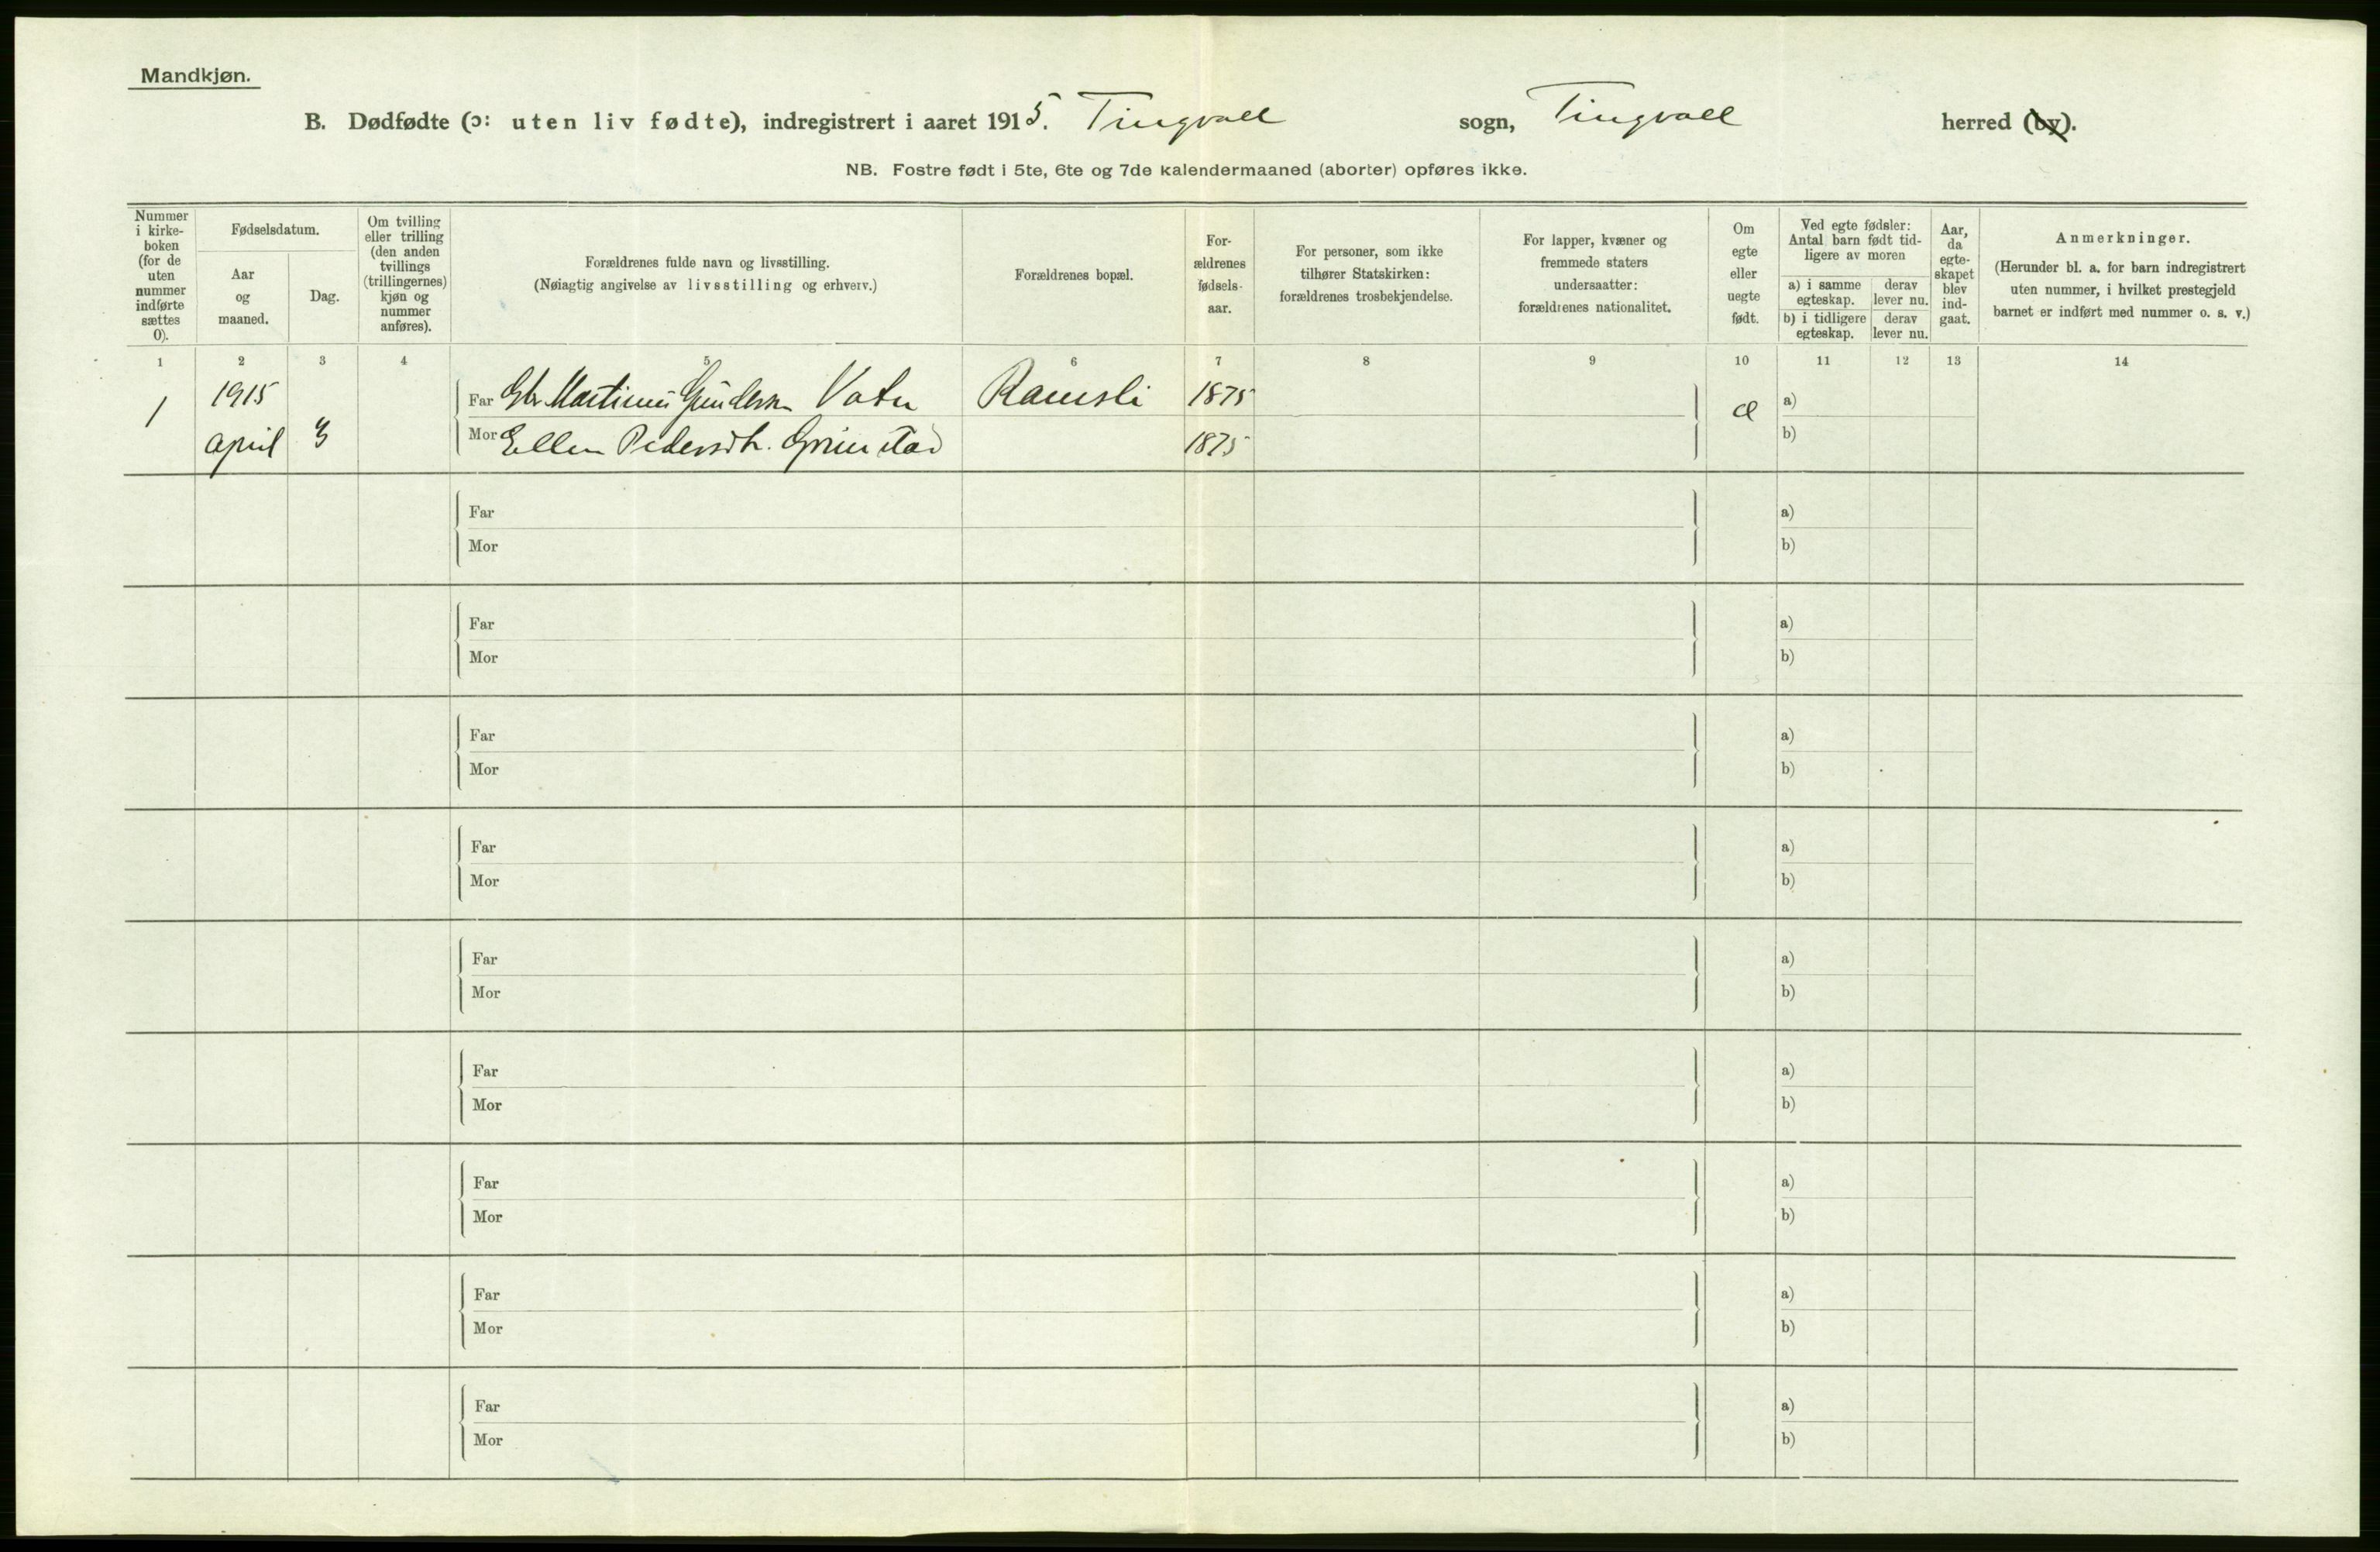 Mandkjøn.
B. Dødfødte (ɔ: uten liv fødte), indregistrert i aaret 1915. Tingvoll sogn, Tingvoll herred (by).
NB. Fostre født i 5te, 6te og 7de kalendermaaned (aborter) opføres ikke.
Nummer
i kirke-
boken
(for de
uten
nummer
indførte
sættes
0).
Fødselsdatum.
Aar
og
maaned.
Dag.
Om tvilling
eller trilling
(den anden
tvillings
(trillingernes)
kjøn og
nummer
anføres).
Forældrenes fulde navn og livsstilling.
(Nøiagtig angivelse av livsstilling og erhverv.)
Forældrenes bopæl.
For-
ældrenes
fødsels-
aar.
For personer, som ikke
tilhører Statskirken:
forældrenes trosbekjendelse.
For lapper, kvæner og
fremmede staters
undersaatter:
forældrenes nationalitet.
Om
egte
eller
uegte
født.
Ved egte fødsler:
Antal barn født tid-
ligere av moren
a) i samme
egteskap.
derav
lever nu.
b) i tidligere
egteskap.
derav
lever nu.
Aar,
da
egte-
skapet
blev
ind-
gaat.
Anmerkninger.
(Herunder bl. a. for barn indregistrert
uten nummer, i hvilket prestegjeld
barnet er indført med nummer o. s. v.)
1 2 3 4 5 6 7 8 9 10 11 12 13 14
1 1915 Far Gbr. Martinus Gundersen Ramsli 1875 a)
april 3 Mor Ellen Pedersdtr. Grimstad 1875 b)
Far a)
Mor b)
Far a)
Mor b)
Far a)
Mor b)
Far a)
Mor b)
Far a)
Mor b)
Far a)
Mor b)
Far a)
Mor b)
Far a)
Mor b)
Far a)
Mor b)